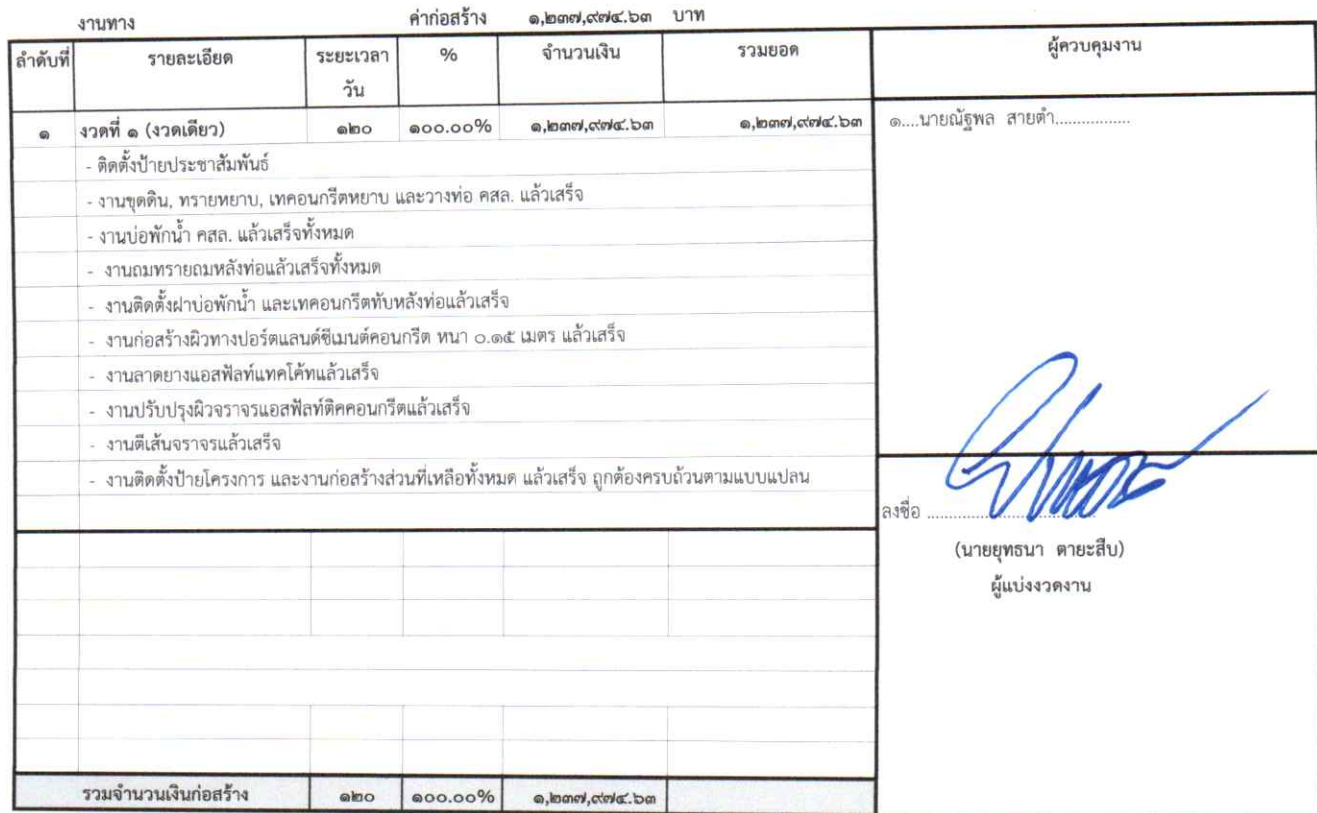 งานทาง ค่าก่อสร้าง ๑,๒๓๗,๙๗๔.๖๓ บาท
ลำดับที่ รายละเอียด ระยะเวลา % จำนวนเงิน รวมยอด ผู้ควบคุมงาน
วัน
๑ งวดที่ ๑ (งวดเดียว) ๑๒๐ ๑๐๐.๐๐% ๑,๒๓๗,๙๗๔.๖๓ ๑,๒๓๗,๙๗๔.๖๓ ๑....นายณัฐพล สายตำ................
- ติดตั้งป้ายประชาสัมพันธ์
- งานขุดดิน, ทรายหยาบ, เทคอนกรีตหยาบ และวางท่อ คสล. แล้วเสร็จ
- งานบ่อพักน้ำ คสล. แล้วเสร็จทั้งหมด
- งานถมทรายถมหลังท่อแล้วเสร็จทั้งหมด
- งานติดตั้งฝาบ่อพักน้ำ และเทคอนกรีตทับหลังท่อแล้วเสร็จ
- งานก่อสร้างผิวทางปอร์ตแลนด์ซีเมนต์คอนกรีต หนา ๐.๑๕ เมตร แล้วเสร็จ
- งานลาดยางแอสฟัลท์แทคโค้ทแล้วเสร็จ
- งานปรับปรุงผิวจราจรแอสฟัลท์ติคคอนกรีตแล้วเสร็จ
- งานตีเส้นจราจรแล้วเสร็จ
- งานติดตั้งป้ายโครงการ และงานก่อสร้างส่วนที่เหลือทั้งหมด แล้วเสร็จ ถูกต้องครบถ้วนตามแบบแปลน
ลงชื่อ ........................................
(นายยุทธนา ตายะสืบ)
ผู้แบ่งงวดงาน
รวมจำนวนเงินก่อสร้าง ๑๒๐ ๑๐๐.๐๐% ๑,๒๓๗,๙๗๔.๖๓